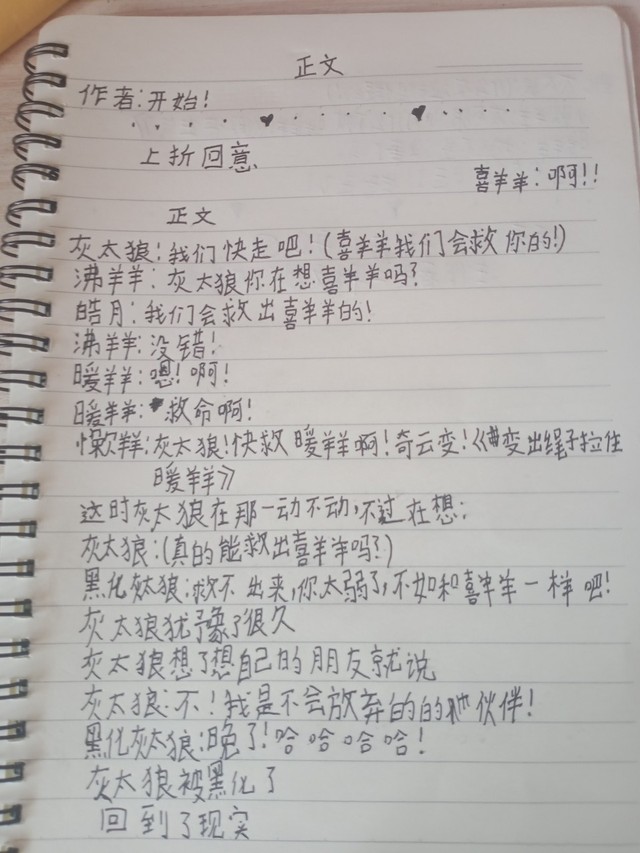 正文
作者:开始!
上折回意
喜羊羊:啊!!
正文
灰太狼:我们快走吧!(喜羊羊我们会救你的!)
沸羊羊:灰太狼你在想喜羊羊吗?
皓月:我们会救出喜羊羊的!
沸羊羊:没错!
暖羊羊:嗯!啊!
暖羊羊:救命啊!
懒羊羊:灰太狼!快救暖羊羊啊!奇云变!《变出绳子拉住
暖羊羊》
这时灰太狼在那一动不动,不过在想:
灰太狼:(真的能救出喜羊羊吗?)
黑化灰太狼:救不出来,你太弱了,不如和喜羊羊一样吧!
灰太狼犹豫了很久
灰太狼想了想自己的朋友就说
灰太狼:不!我是不会放弃的的他伙伴!
黑化灰太狼:晚了!哈哈哈哈!
灰太狼被黑化了
回到了现实